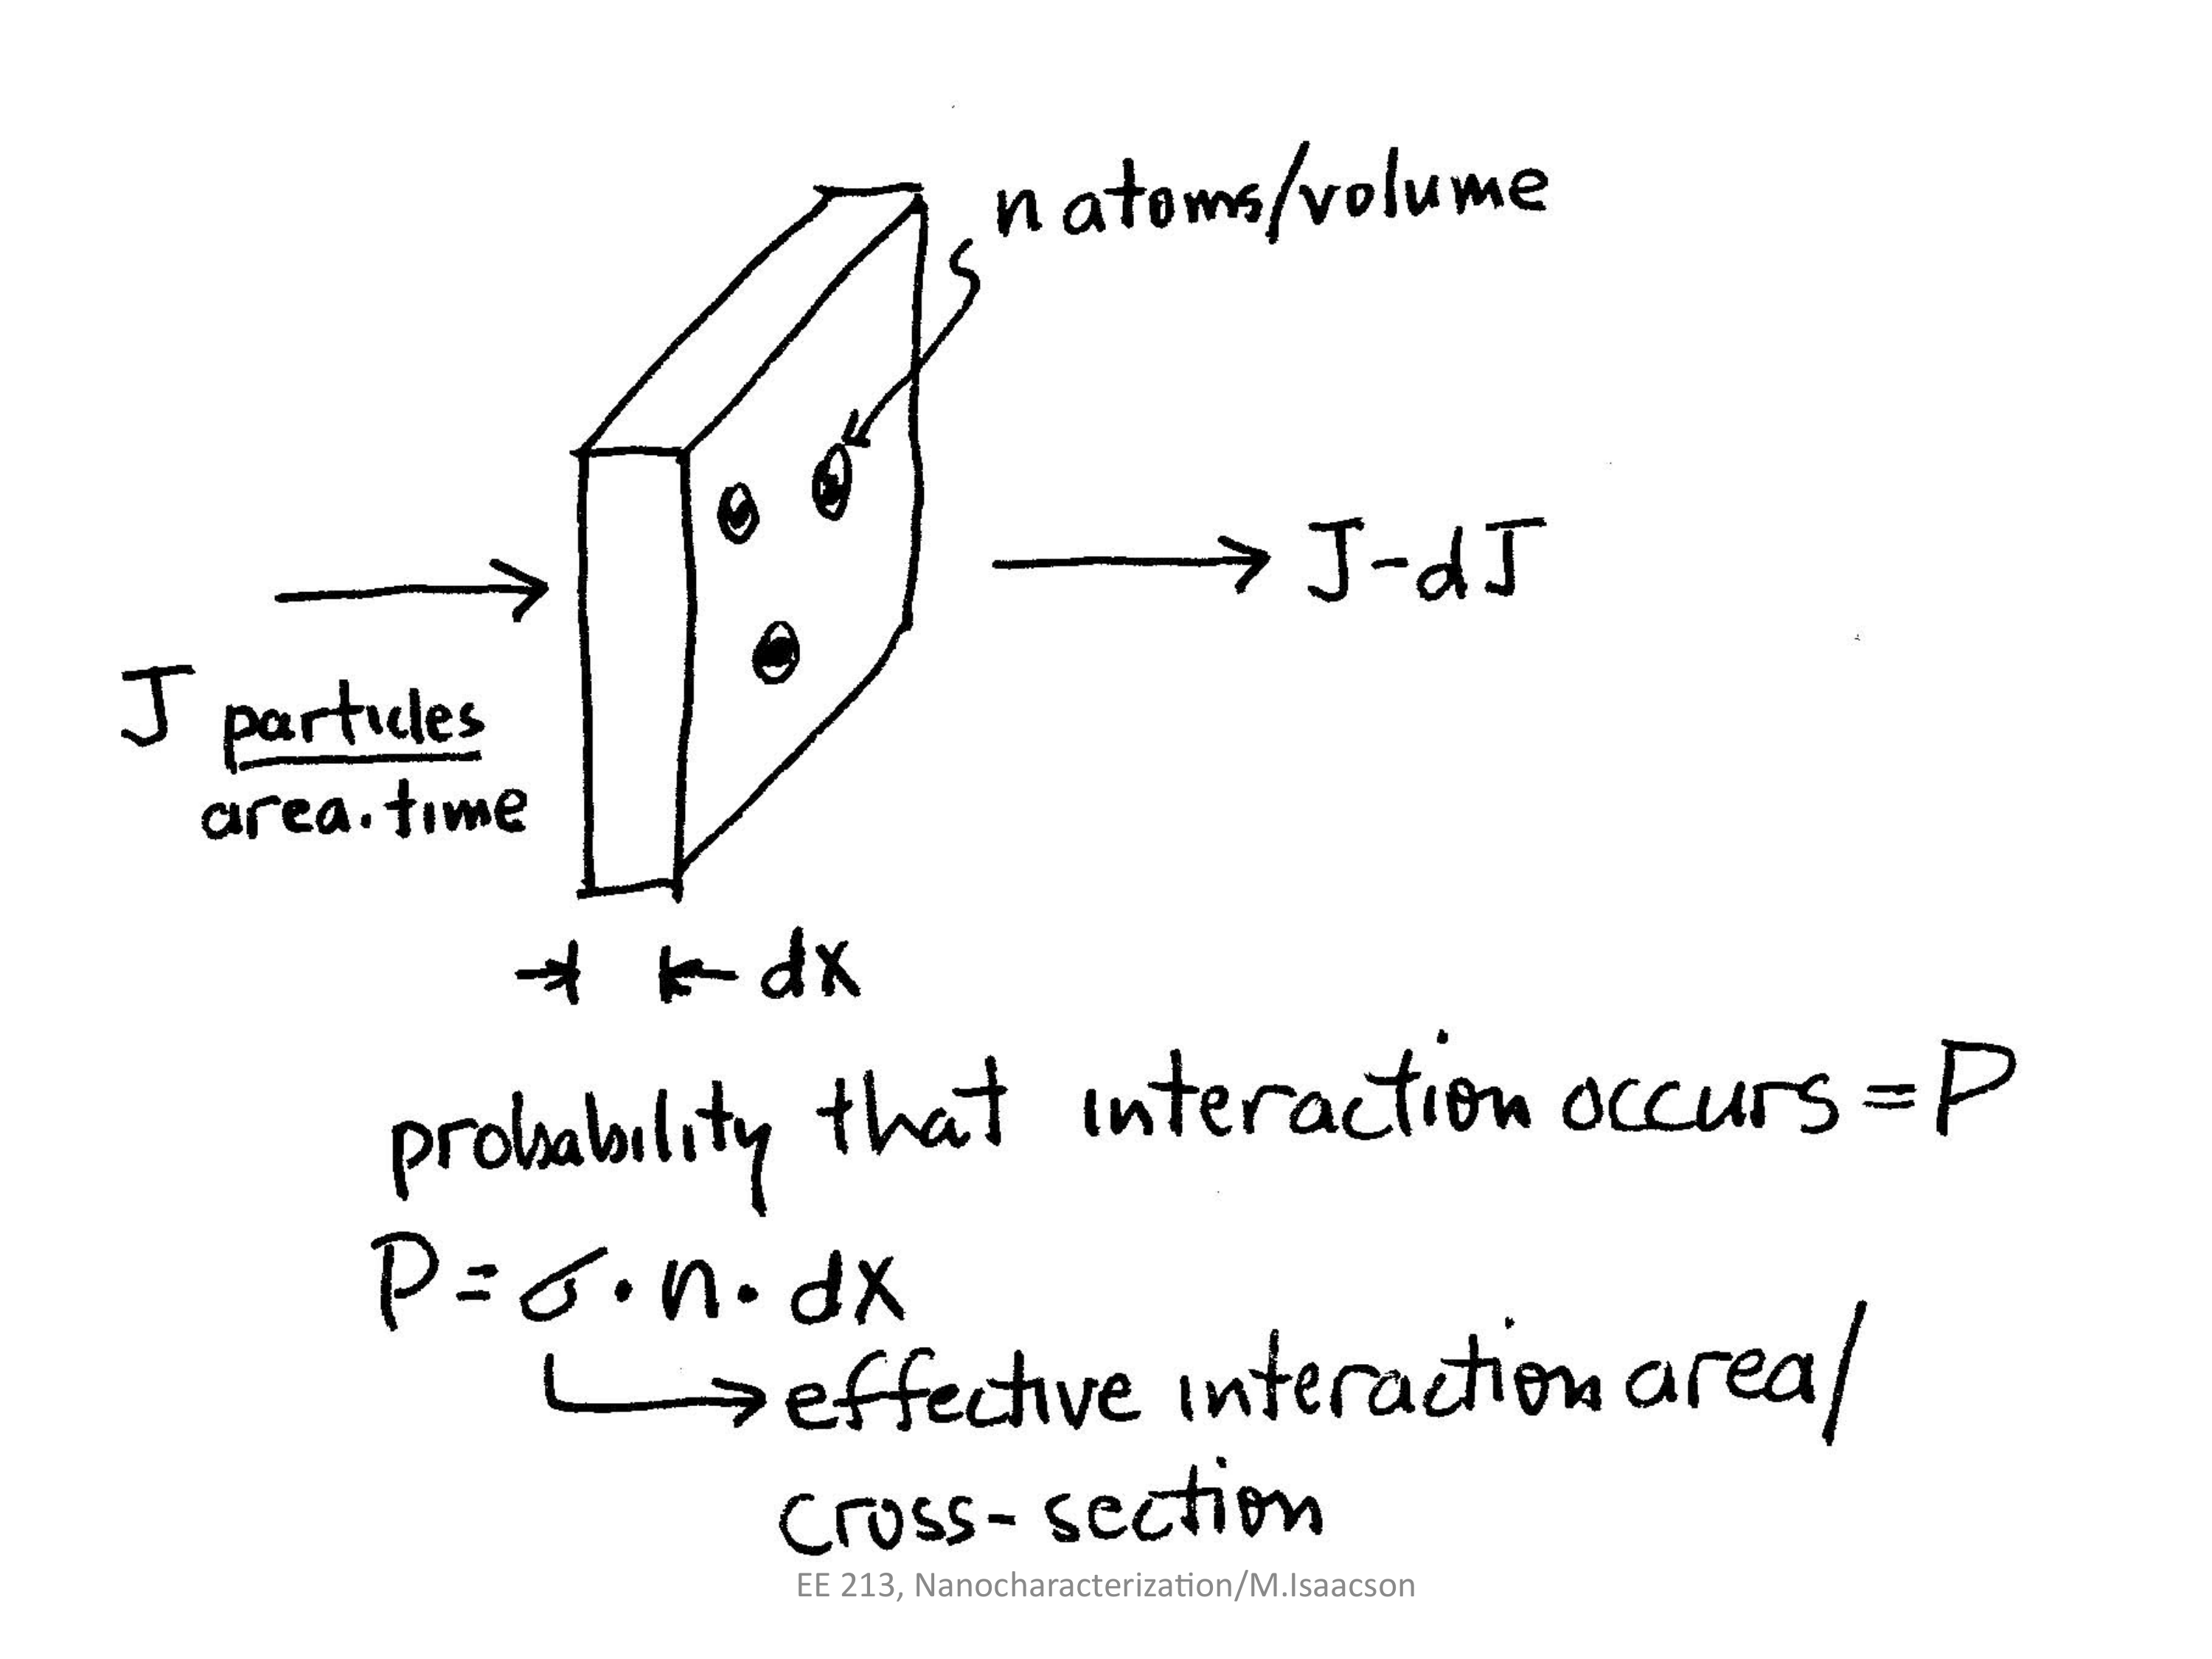 n atoms/volume
J-dJ
J particles
area.time
dx
probability that interaction occurs = P
P = σ · n · dx
effective interaction area/
cross-section
EE 213, Nanocharacterization/M.Isaacson